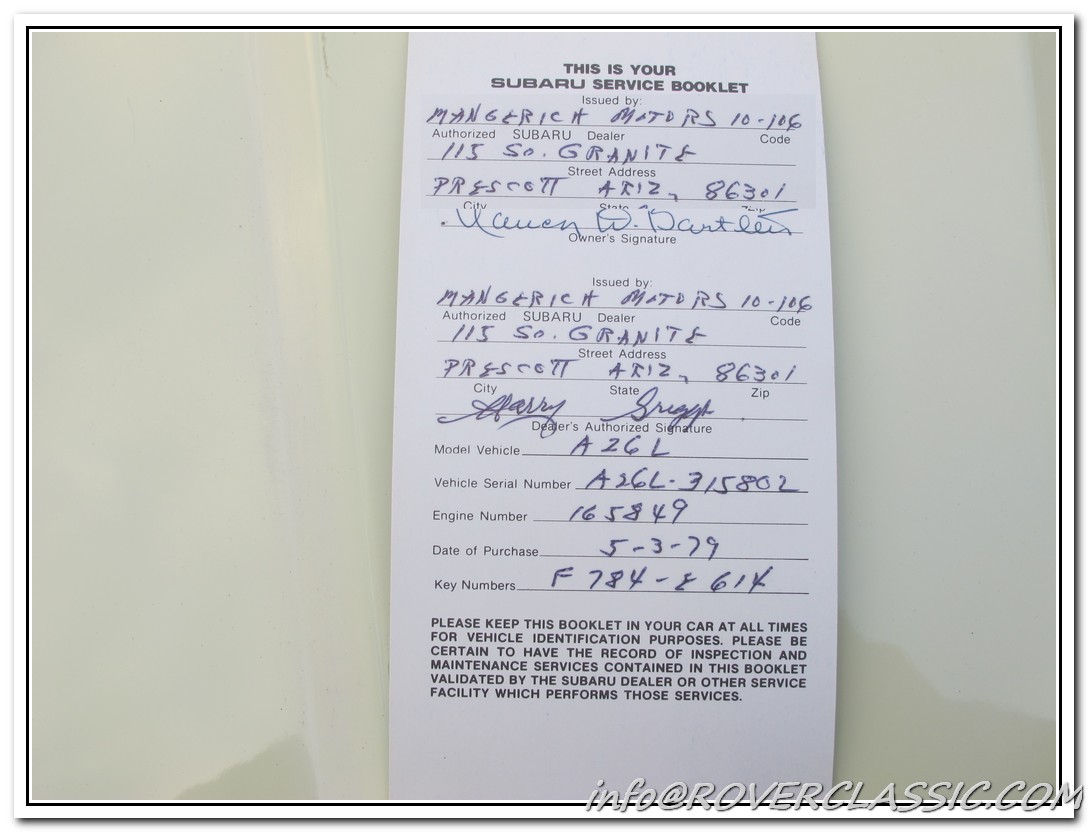 THIS IS YOUR
SUBARU SERVICE BOOKLET
Issued by:
MANGERICH MOTORS 10-106
Authorized SUBARU Dealer Code
115 SO. GRANITE
Street Address
PRESCOTT ARIZ, 86301
City State Zip
Owner's Signature
Issued by:
MANGERICH MOTORS 10-106
Authorized SUBARU Dealer Code
115 SO. GRANITE
Street Address
PRESCOTT ARIZ, 86301
City State Zip
Harry Griggs
Dealer's Authorized Signature
Model Vehicle A26L
Vehicle Serial Number A26L-315802
Engine Number 165849
Date of Purchase 5-3-79
Key Numbers F 784-E 614
PLEASE KEEP THIS BOOKLET IN YOUR CAR AT ALL TIMES
FOR VEHICLE IDENTIFICATION PURPOSES. PLEASE BE
CERTAIN TO HAVE THE RECORD OF INSPECTION AND
MAINTENANCE SERVICES CONTAINED IN THIS BOOKLET
VALIDATED BY THE SUBARU DEALER OR OTHER SERVICE
FACILITY WHICH PERFORMS THOSE SERVICES.
info@ROVERCLASSIC.COM